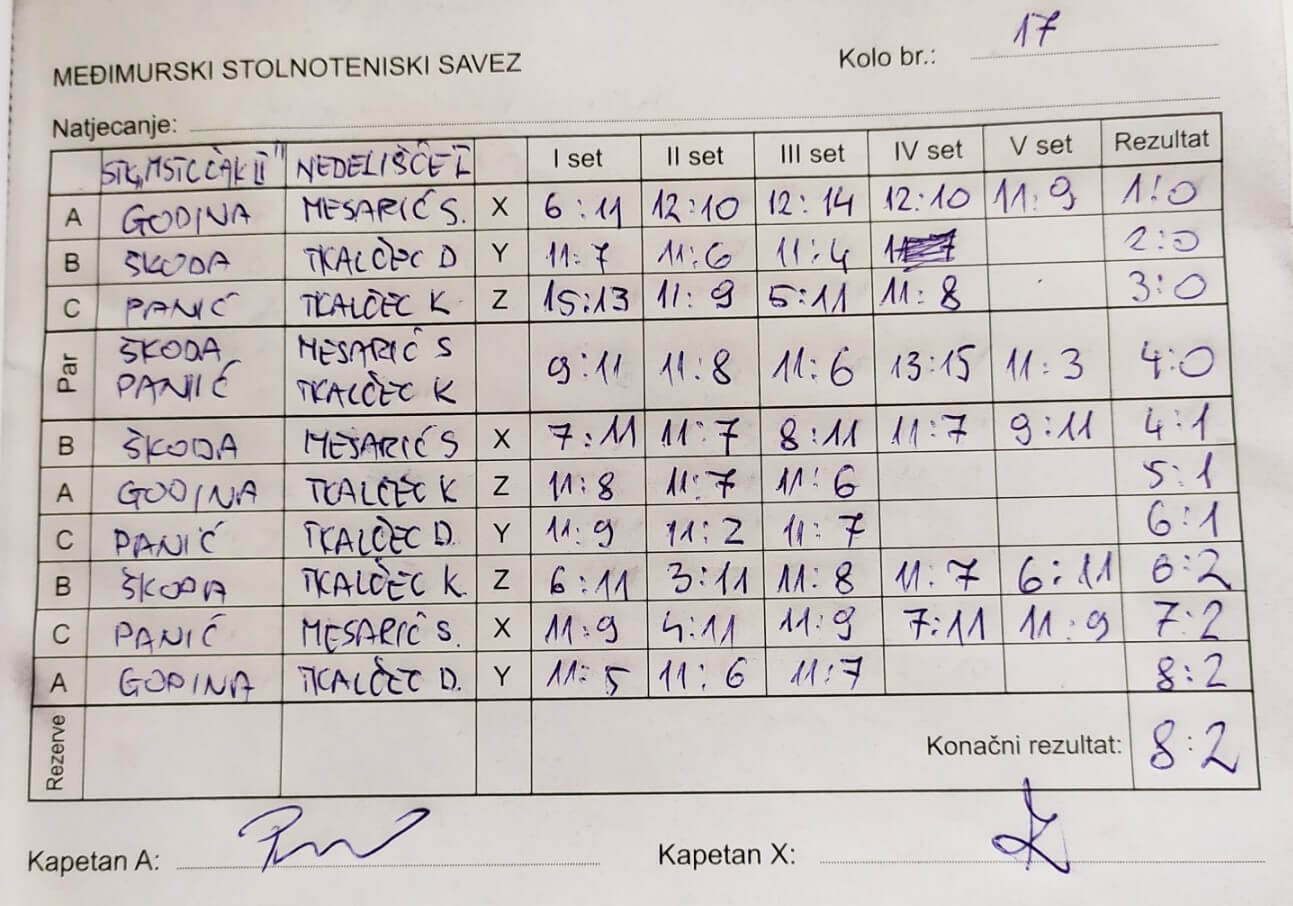 Kolo br.: 17
MEĐIMURSKI STOLNOTENISKI SAVEZ
Natjecanje:
STK„MSTC ČAK II" NEDELIŠĆE I I set II set III set IV set V set Rezultat
A GODINA MESARIĆ S. X 6:11 12:10 12:14 12:10 11:9 1:0
B ŠKODA TKALČEC D Y 11:7 11:6 11:4 2:0
C PANIĆ TKALČEC K Z 15:13 11:9 5:11 11:8 3:0
Par ŠKODA MESARIĆ S 9:11 11:8 11:6 13:15 11:3 4:0
PANIĆ TKALČEC K
B ŠKODA MESARIĆ S X 7:11 11:7 8:11 11:7 9:11 4:1
A GODINA TKALČEC K Z 11:8 11:7 11:6 5:1
C PANIĆ TKALČEC D. Y 11:9 11:2 11:7 6:1
B ŠKODA TKALČEC K. Z 6:11 3:11 11:8 11:7 6:11 6:2
C PANIĆ MESARIĆ S. X 11:9 4:11 11:9 7:11 11:9 7:2
A GODINA TKALČEC D. Y 11:5 11:6 11:7 8:2
Rezerve Konačni rezultat: 8:2
Kapetan A: Kapetan X: